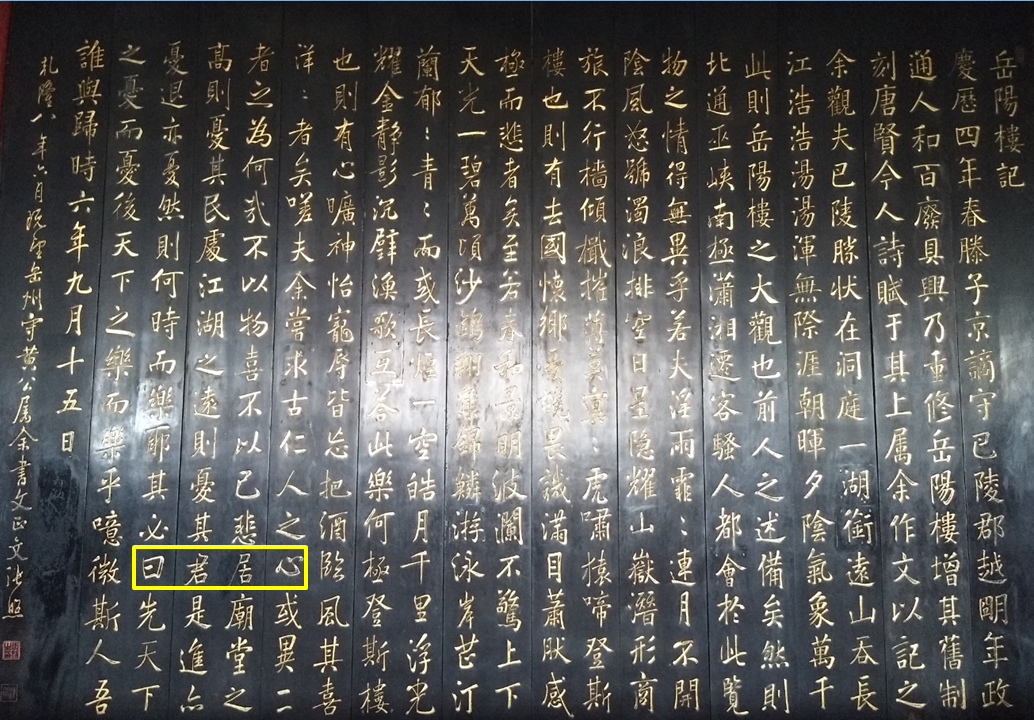 岳陽樓記
慶歷四年春滕子京謫守巴陵郡越明年政
通人和百廢具興乃重修岳陽樓增其舊制
刻唐賢今人詩賦于其上属余作文以記之
余觀夫巴陵勝狀在洞庭一湖銜遠山吞長
江浩浩湯湯渾無際涯朝暉夕陰氣象萬千
此則岳陽樓之大觀也前人之述備矣然則
北通巫峽南極瀟湘遷客騷人都會於此覽
物之情得無異乎若夫淫雨霏〻連月不開
陰風怒號濁浪排空日星隱耀山嶽潛形商
旅不行檣傾檝摧薄暮冥〻虎嘯猿啼登斯
樓也則有去國懷鄉憂讒畏譏滿目蕭然感
極而悲者矣至若春和景明波瀾不驚上下
天光一碧萬頃沙鷗翔集錦鱗游泳岸芷汀
蘭郁〻青〻而或長煙一空皓月千里浮光
耀金靜影沉璧漁歌互答此樂何極登斯樓
也則有心曠神怡寵辱皆忘把酒臨風其喜
洋〻者矣嗟夫余嘗求古仁人之心或異二
者之為何哉不以物喜不以己悲居廟堂之
高則憂其民處江湖之遠則憂其君是進亦
憂退亦憂然則何時而樂耶其必曰先天下
之憂而憂後天下之樂而樂乎噫微斯人吾
誰與歸時六年九月十五日
乾隆八年六月既望岳州守黃公属余書文正文張照